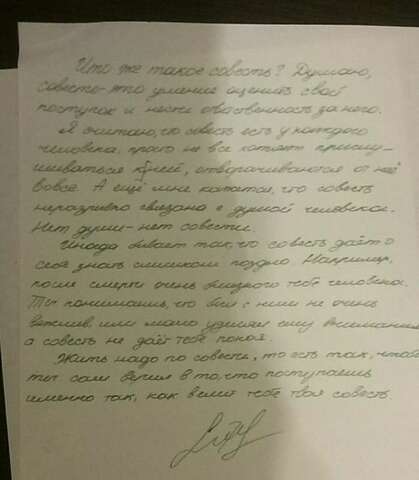 Что же такое совесть? Думаю,
совесть - это умение оценить свой
поступок и нести ответственность за него.
Я считаю, что совесть есть у каждого
человека, просто не все хотят прислу-
шиваться к ней, отворачиваются от неё
вовсе. А ещё мне кажется, что совесть
неразрывно связана с душой человека.
Нет души - нет совести.
Иногда бывает так, что совесть даёт о
себе знать слишком поздно. Например,
после смерти очень близкого тебе человека.
Ты понимаешь, что был с ним не очень
вежлив, или мало уделял ему внимания
а совесть не даёт тебе покоя.
Жить надо по совести, то есть так, чтобы
ты сам верил в то, что поступаешь
именно так, как велит тебе твоя совесть